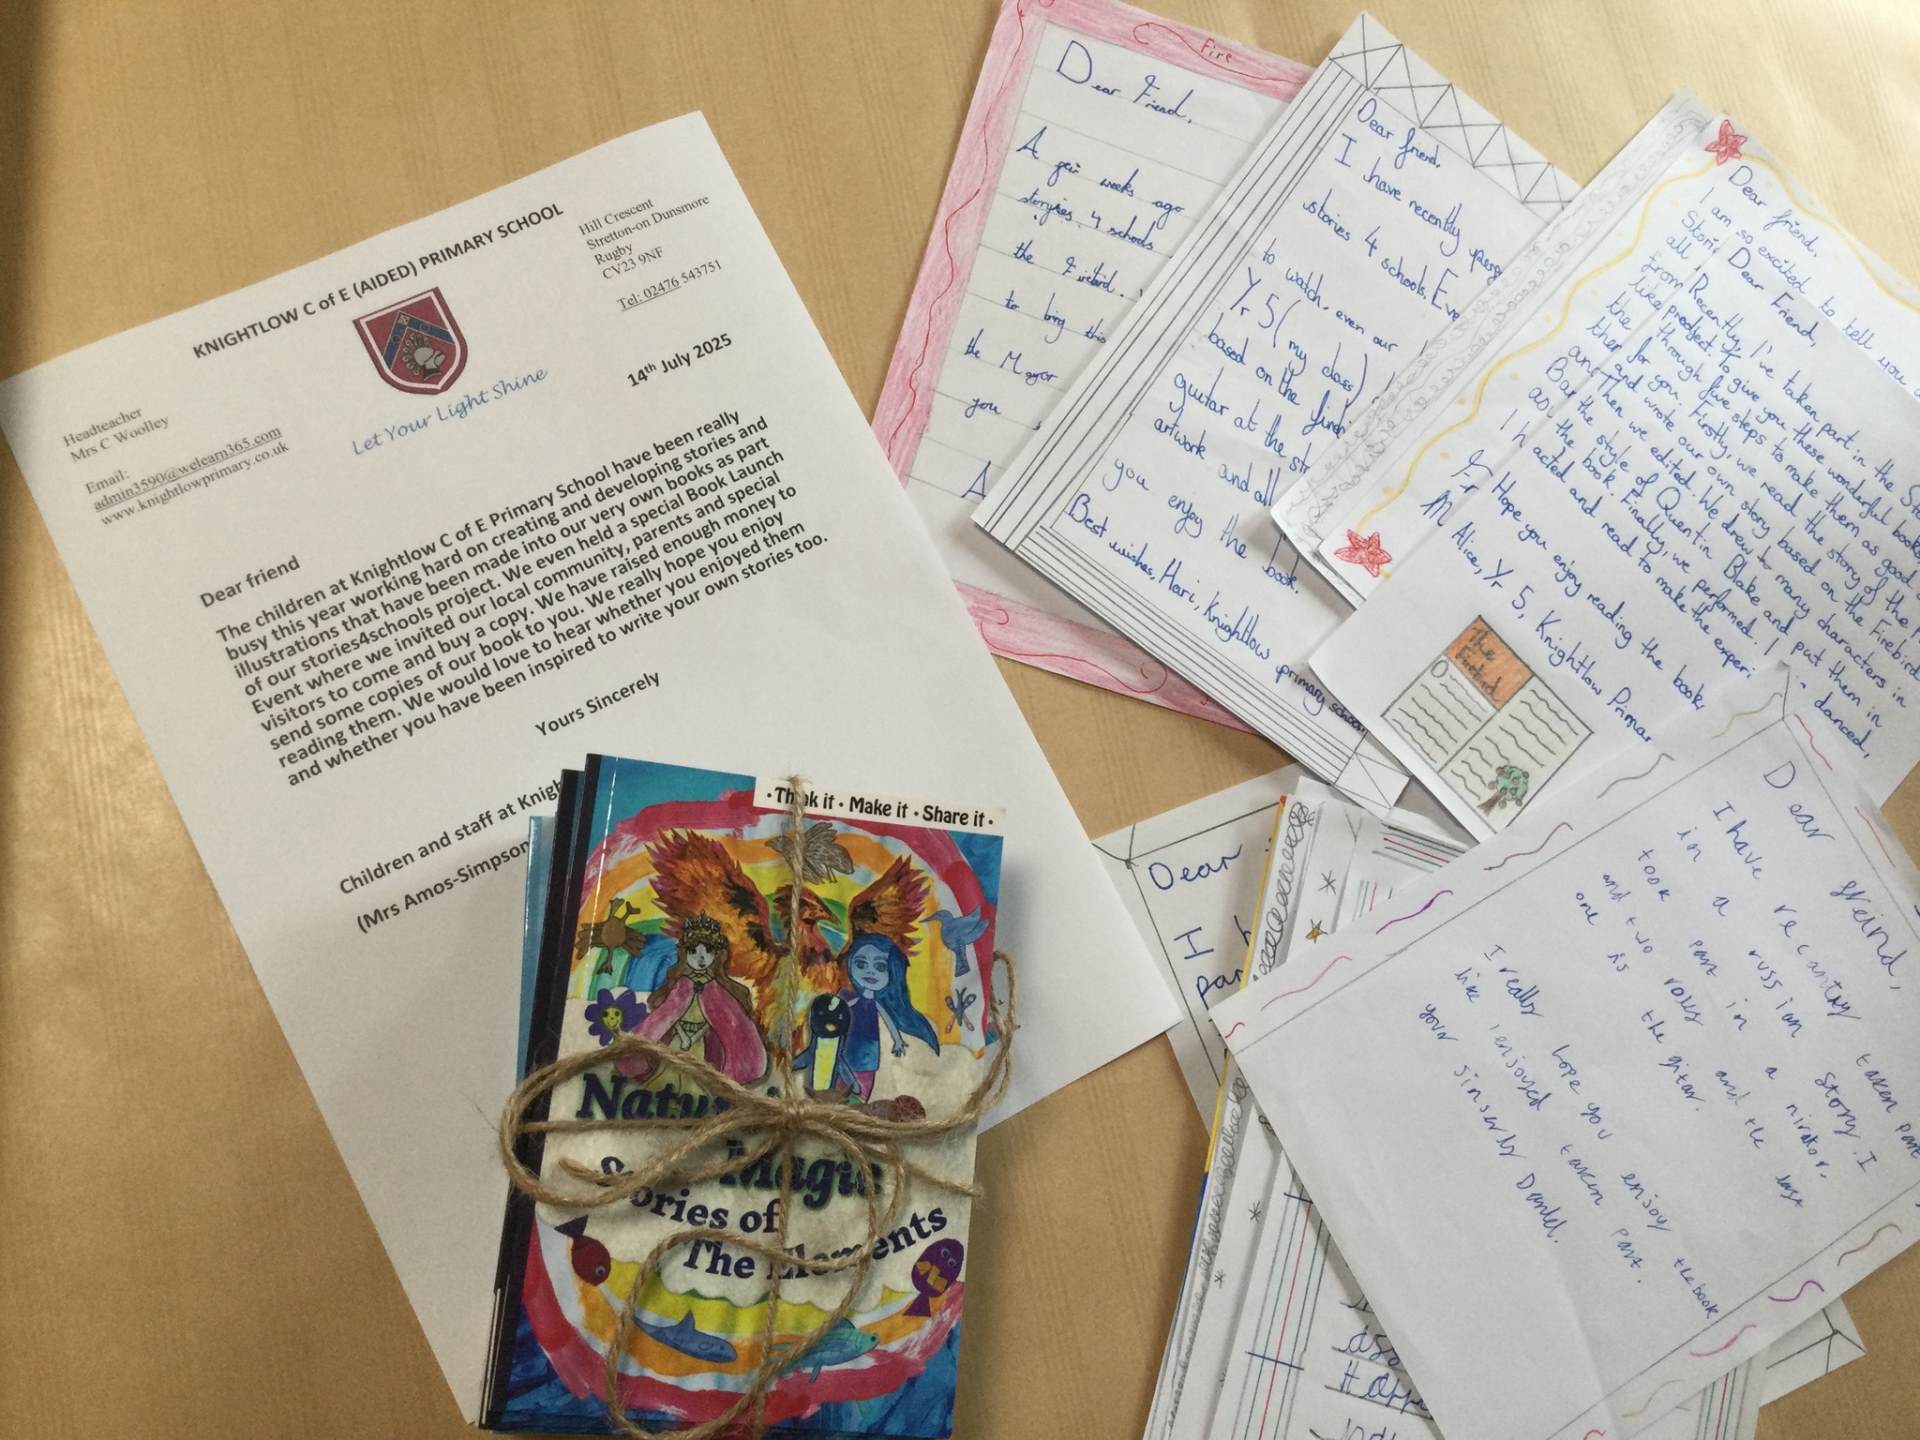 KNIGHTLOW C of E (AIDED) PRIMARY SCHOOL
Hill Crescent
Stretton-on Dunsmore
Rugby
CV23 9NF
Tel: 02476 543751
Headteacher
Mrs C Woolley
Email:
admin3590@welearn365.com
www.knightlowprimary.co.uk
Let Your Light Shine
14th July 2025
Dear friend
The children at Knightlow C of E Primary School have been really
busy this year working hard on creating and developing stories and
illustrations that have been made into our very own books as part
of our stories4schools project. We even held a special Book Launch
Event where we invited our local community, parents and special
visitors to come and buy a copy. We have raised enough money to
send some copies of our book to you. We really hope you enjoy
reading them. We would love to hear whether you enjoyed them
and whether you have been inspired to write your own stories too.
Yours Sincerely
Children and staff at Knigh
(Mrs Amos-Simpson
· Think it · Make it · Share it ·
Magic
Stories of
The Elements
Dear Friend,
A few weeks ago
4 schools
the
to bring this
the Mayor
you
A
Dear friend,
I have recently
stories 4 schools. Eve
to watch, even our
Yr 5 (my class)
based on the
guitar at the
artwork and all
you enjoy the book.
Best wishes, Hari, Knightlow primary school
Dear friend,
I am so excited to tell you
Stori
all
from
like
the
Dear Friend,
Recently, I've taken part in the
prodject. To give you these wonderful books,
through five steps to make them as good
for you. Firstly, we read the story of the
and wrote our own story based on the Firebird.
Then we edited. We drew to many characters in
the style of Quentin Blake and put them in
the book. Finally, we performed. I danced,
acted and read to make the experi
Hope you enjoy reading the book,
Alice, Yr 5, Knightlow Primar
The
Firebird
Dear freind,
I have recantay taken part
in a russian story. I
took part in a nirator.
and two roles and the last
one is the gitar.
I really hope you enjoy the book
like i enjoyed taken part.
your sinserly Daniel.
Dear
H
par